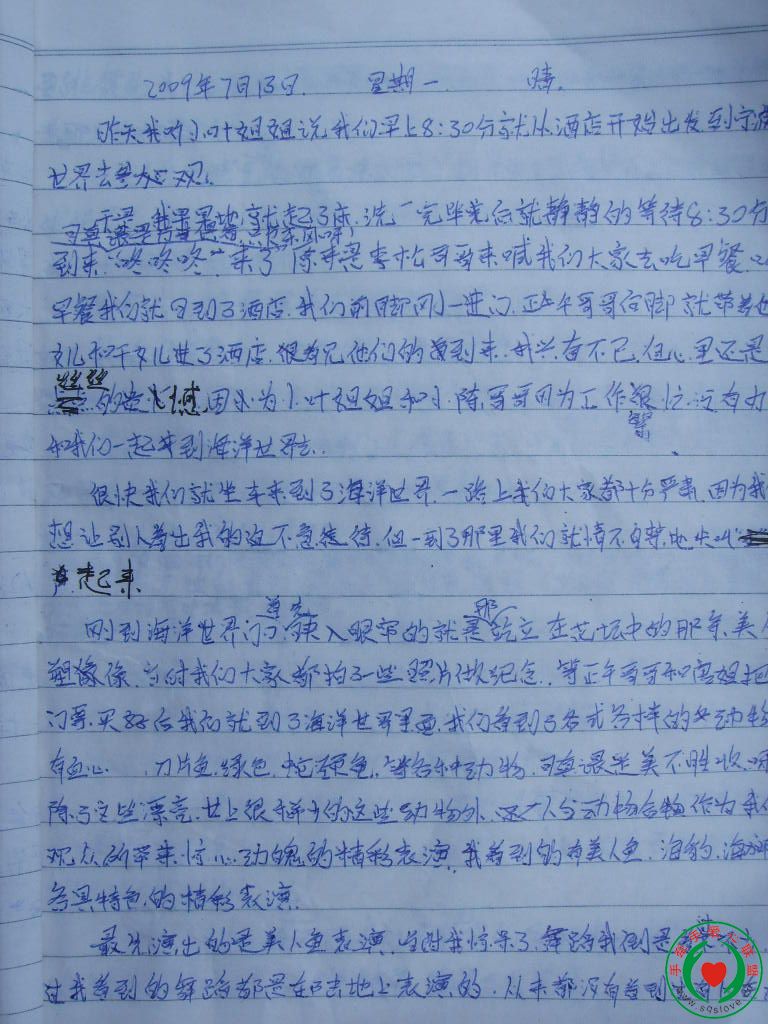 2009年7月13日. 星期一 晴.
昨天我听小叶姐姐说我们早上8:30分就从酒店开始出发到宁波
世界去参观.
于是,我早早地就起了床,洗完毕先后就静静的等待8:30分
可真是
到来."咚咚咚"来了原来是李松哥哥来喊我们大家去吃早餐,吃
早餐我们就回到了酒店.我们前脚刚一进门,正午哥哥后脚就带着他
女儿和干女儿进了酒店.很看见他们的到来,我兴奋不已,但心里还是
丝丝
的遗憾,因为小叶姐姐和小陈哥哥因为工作很忙,没有办
和我们一起来到海洋世界.
很快我们就坐车来到了海洋世界.一路上我们大家都十分严肃,因为我
想让别人看出我的迫不急待,但一到了那里我们就情不自禁地尖叫
起来.
首先 那
刚到海洋世界门口,映入眼帘的就是站立在花坛中的那条美人
塑像,当时我们大家都拍了一些照片做纪念.等正午哥哥和姐把
门票买好后我们就到了海洋世界里面,我们看到了各式各样的动物
有 刀片鱼,绿色,等各种动物,可真是美不胜收,
除了这些漂亮,世上很稀少的这些动物外,还动物作为我们
观众所带来惊心动魄的精彩表演,我看到的有美人鱼,海豹,海狮
各具特色的精彩表演.
最先演出的是美人鱼表演,当时我惊呆了,舞蹈我倒是
过我看到的舞蹈都是在陆地上表演的,从来都没有看到
手牵手爱心联盟
www.sqslove